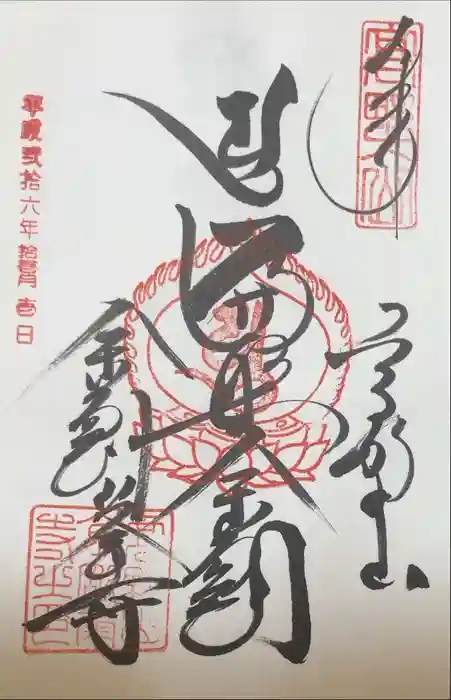 奉
高野山
高野山
遍照金剛
金剛峯寺
平成弐拾六年拾壱月壱日